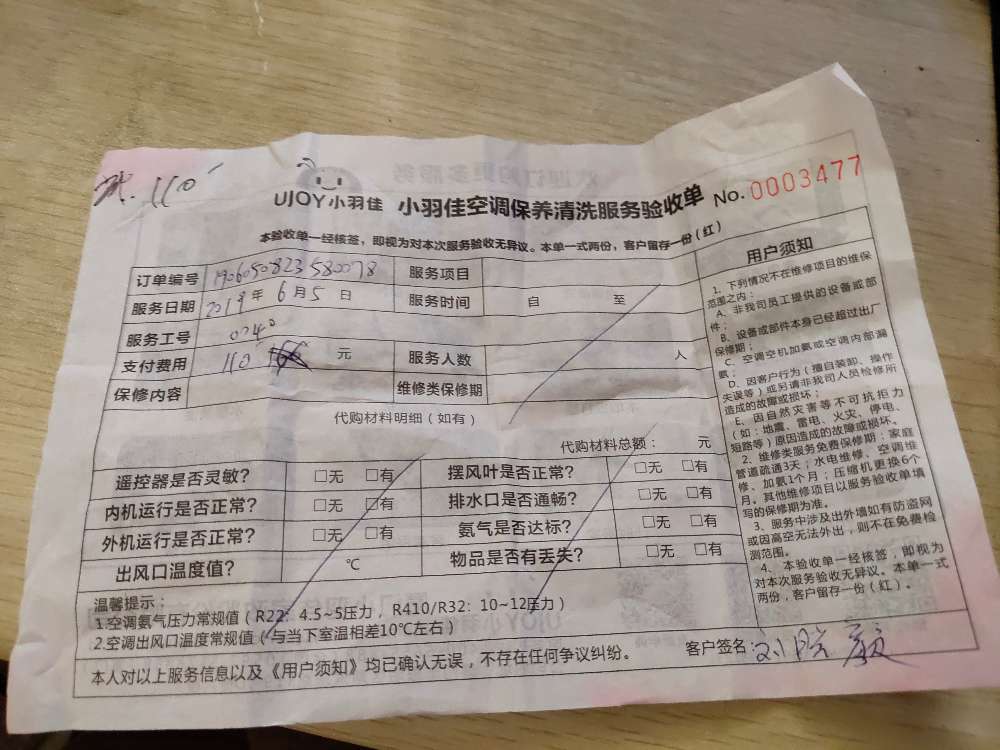 110
UJOY小羽佳 小羽佳空调保养清洗服务验收单 No. 0003477
本验收单一经核签，即视为对本次服务验收无异议。本单一式两份，客户留存一份（红）
订单编号 1906050823580078 服务项目
服务日期 2019年6月5日 服务时间 自 至
服务工号 0040
支付费用 110 元 服务人数 人
保修内容 维修类保修期
代购材料明细（如有）
代购材料总额： 元
遥控器是否灵敏? □无 □有 摆风叶是否正常? □无 □有
内机运行是否正常? □无 □有 排水口是否通畅? □无 □有
外机运行是否正常? □无 □有 氨气是否达标? □无 □有
出风口温度值? ℃ 物品是否有丢失? □无 □有
温馨提示：
1.空调氨气压力常规值（R22：4.5~5压力，R410/R32：10~12压力）
2.空调出风口温度常规值（与当下室温相差10℃左右）
本人对以上服务信息以及《用户须知》均已确认无误，不存在任何争议纠纷。 客户签名：刘
用户须知
1、下列情况不在维修项目的维保
范围之内：
A、非我司员工提供的设备或部
件；
B、设备或部件本身已经超过出厂
保修期；
C、空调空机加氨或空调内部漏
氨；
D、因客户行为（擅自装卸、操作
失误等）或另请非我司人员检修所
造成的故障或损坏；
E、因自然灾害等不可抗拒力
（如：地震、雷电、火灾、停电、
短路等）原因造成的故障或损坏。
2、维修类服务免费保修期：家庭
管道疏通3天；水电维修、空调维
修、加氨1个月；压缩机更换6个
月。其他维修项目以服务验收单填
写的保修期为准。
3、服务中涉及出外墙如有防盗网
或因高空无法外出，则不在免费检
测范围。
4、本验收单一经核签，即视为
对本次服务验收无异议。本单一式
两份，客户留存一份（红）。